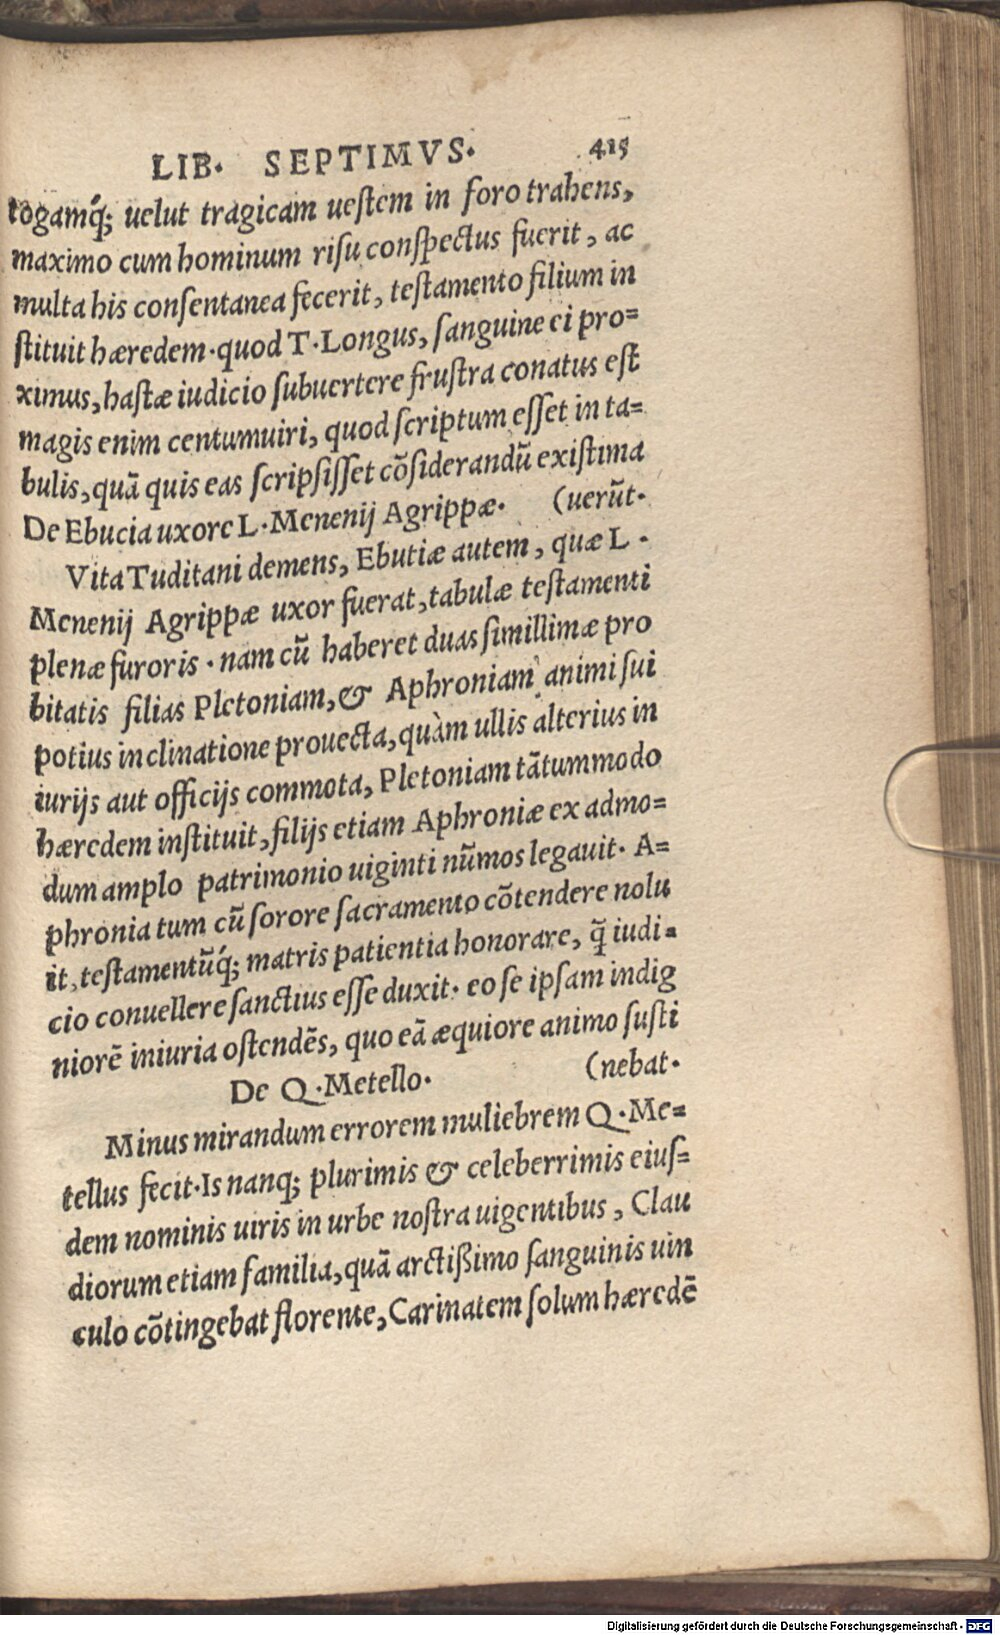 LIB. SEPTIMVS. 415
togamq́; uelut tragicam ueſtem in foro trahens,
maximo cum hominum riſu conſpectus fuerit, ac
multa his conſentanea fecerit, teſtamento filium in
ſtituit hæredem. quod T. Longus, ſanguine ei pro=
ximus, haſtæ iudicio ſubuertere fruſtra conatus eſt
magis enim centumuiri, quod ſcriptum eſſet in ta=
bulis, quã quis eas ſcripſiſſet cõſiderandũ exiſtima
De Ebucia uxore L. Menenij Agrippæ. (uerũt.
Vita Tuditani demens, Ebutiæ autem, quæ L.
Menenij Agrippæ uxor fuerat, tabulæ teſtamenti
plenæ furoris. nam cũ haberet duas ſimillimæ pro
bitatis filias Pletoniam, & Aphroniam animi ſui
potius inclinatione prouecta, quàm ullis alterius in
iurijs aut officijs commota, Pletoniam tãtummodo
hæredem inſtituit, filijs etiam Aphroniæ ex admo=
dum amplo patrimonio uiginti nũmos legauit. A=
phronia tum cũ ſorore ſacramento cõtendere nolu
it, teſtamentũq́; matris patientia honorare, q̃ iudi=
cio conuellere ſanctius eſſe duxit. eo ſe ipſam indig
niorẽ iniuria oſtendẽs, quo eã æquiore animo ſuſti
De Q. Metello. (nebat.
Minus mirandum errorem muliebrem Q. Me=
tellus fecit. Is nanq; plurimis & celeberrimis eiuſ=
dem nominis uiris in urbe noſtra uigentibus, Clau
diorum etiam familia, quã arctißimo ſanguinis uin
culo cõtingebat florente, Carinatem ſolum hæredẽ
Digitalisierung gefördert durch die Deutsche Forschungsgemeinschaft - DFG